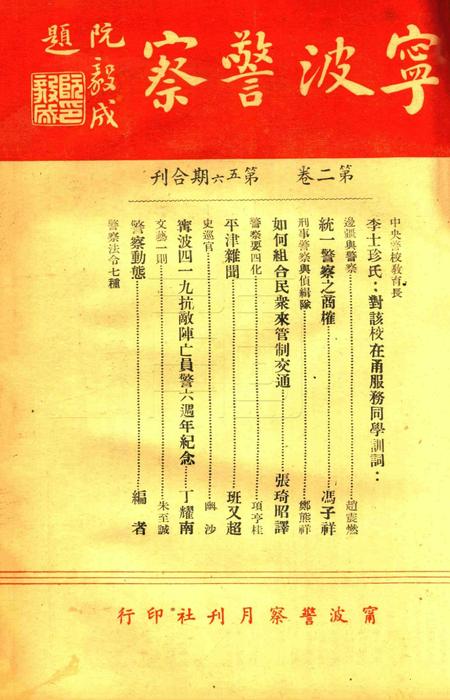 寧波警察
阮毅成題
阮毅成印
第二卷 第五六期合刊
中央警校教育長
李士珍氏：對該校在甬服務同學訓詞：
邊疆與警察 趙震燃
統一警察之商榷 馮子祥
刑事警察與偵緝隊 鄭熊祥
如何組合民衆來管制交通 張琦昭譯
警察要四化 項亨桂
平津雜聞 班又超
史巡官 幽沙
寗波四一九抗敵陣亡員警六週年紀念 丁耀南
文藝一則 朱至誠
警察動態 編者
警察法令七種
甯波警察月刊社印行